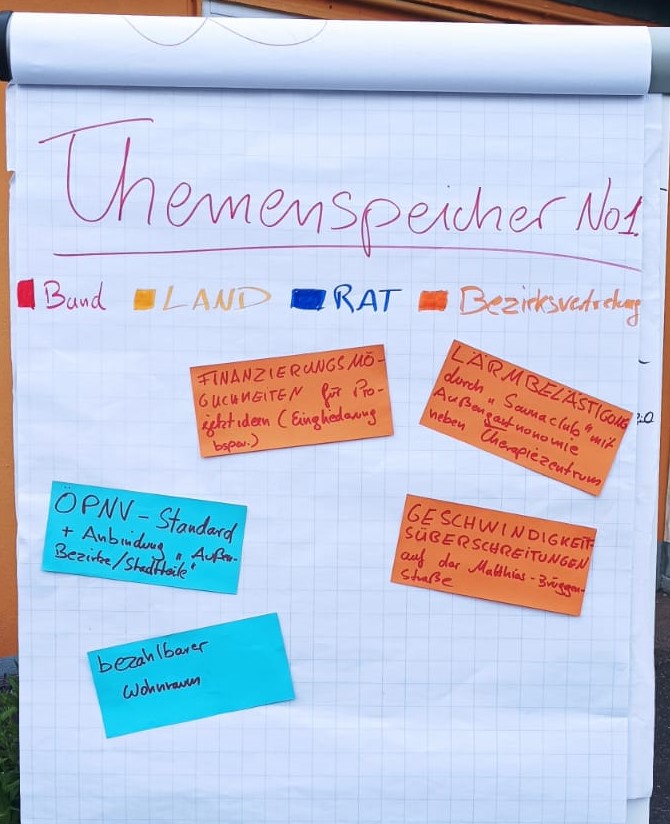 Themenspeicher No1.
Bund LAND RAT Bezirksvertretung
FINANZIERUNGSMÖ-
GLICHKEITEN für Pro-
jektideen (Eingliederung
bspw.)
LÄRMBELÄSTIGUNG
durch "Saunaclub" mit
Außengastronomie
neben Therapiezentrum
ÖPNV-Standard
+ Anbindung "Außen-
Bezirke/Stadtteile"
GESCHWINDIGKEIT-
SÜBERSCHREITUNGEN
auf der Matthias-Brüggen-
Straße
bezahlbarer
Wohnraum